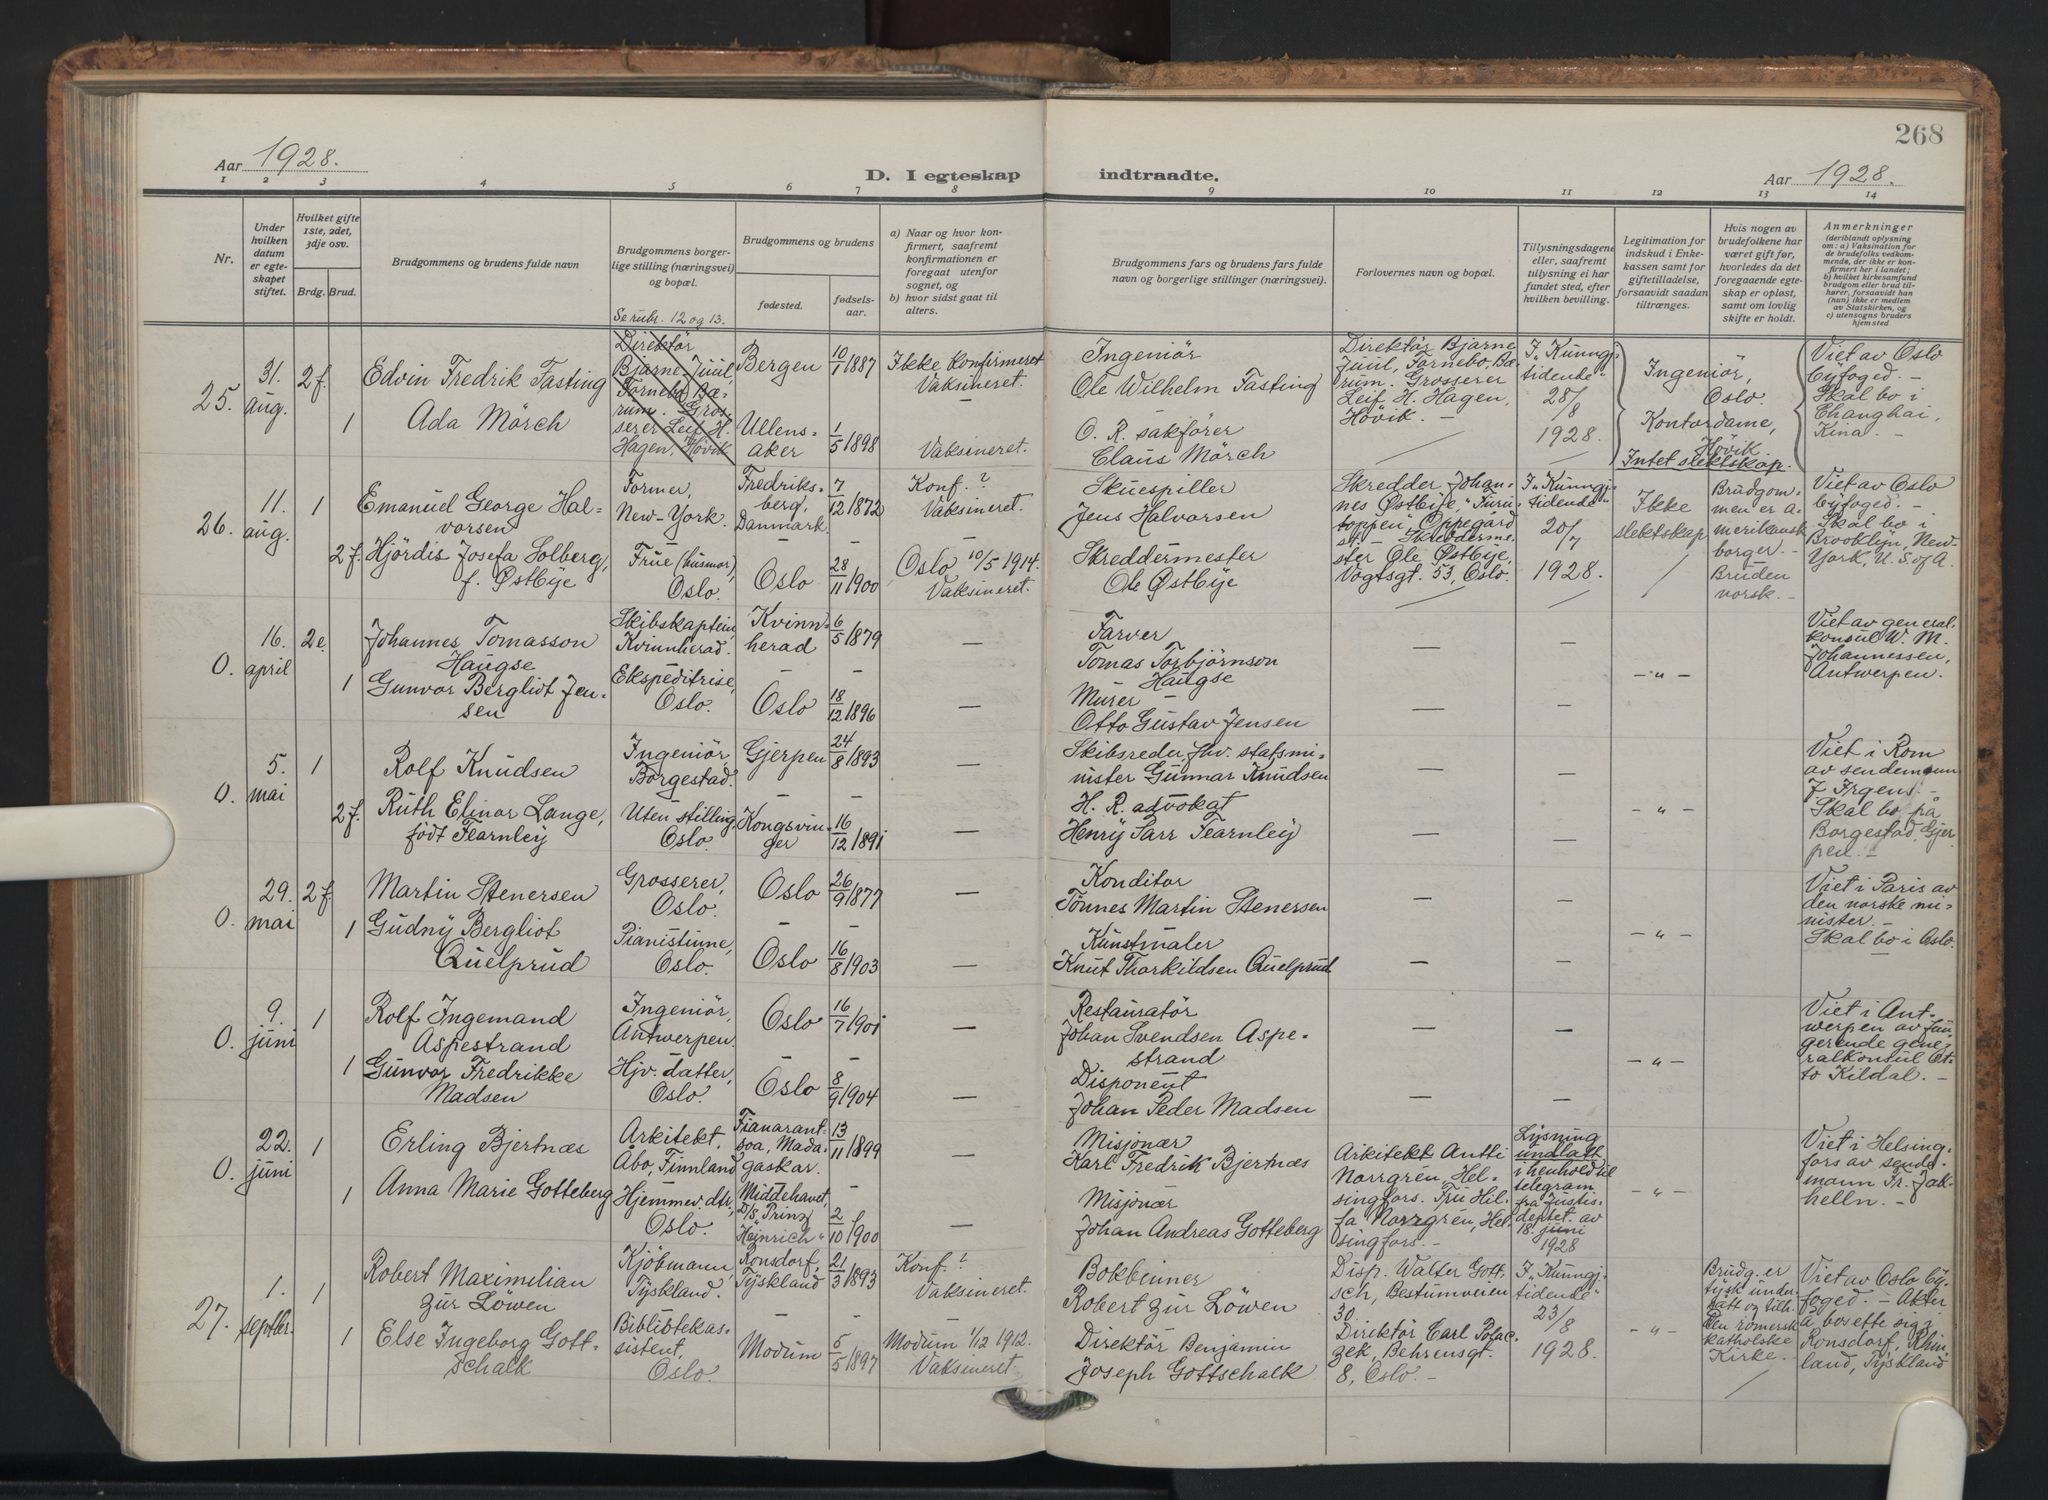 268
Aar 1928.
D. I egteskap indtraadte.
Aar 1928.
1 2 3 4 5 6 7 8 9 10 11 12 13 14
Nr.
Under hvilken datum er egteskapet stiftet.
Hvilket gifte 1ste, 2det, 3dje osv.
Brdg. Brud.
Brudgommens og brudens fulde navn
Brudgommens borgerlige stilling (næringsvei) og bopæl.
Se rubr. 12 og 13.
Brudgommens og brudens
fødested.
fødselsaar.
a) Naar og hvor konfirmert, saafremt konfirmationen er foregaat utenfor sognet, og
b) hvor sidst gaat til alters.
Brudgommens fars og brudens fars fulde navn og borgerlige stillinger (næringsvei).
Forlovernes navn og bopæl.
Tillysningsdagene eller, saafremt tillysning ei har fundet sted, efter hvilken bevilling.
Legitimation for indskud i Enkekassen samt for giftetilladelse, forsaavidt saadan tiltrænges.
Hvis nogen av brudefolkene har været gift før, hvorledes da det foregaaende egteskap er opløst, samt om lovlig skifte er holdt.
Anmerkninger
(deriblandt oplysning om: a) Vaksination for de brudefolks vedkommende, der ikke er konfirmert her i landet; b) hvilket kirkesamfund brudgom eller brud tilhører, forsaavidt han (hun) ikke er medlem av Statskirken, og c) utensogns bruders hjemsted
25.
31. aug.
2 f.
Edvin Fredrik Fasting
Direktör Bjarne Juul, Fornebo, Bærum. Grosserer Leif H. Hagen, Hövik
Bergen
10/1 1887
Ikke konfirmeret
Vaksineret.
Ingeniör
Ole Wilhelm Fasting
Direktör Bjarne
Juul, Fornebo, Bæ-
rum. Grosserer
Leif H. Hagen,
Hövik. —
I "Kunngj.
tidende"
28/8
1928.
Ingeniör,
Oslo.
Kontordame,
Hövik
Intet slektskap.
Viet av Oslo
byfoged. —
Skal bo i
Changhai,
Kina. —
1
Ada Mörch
Ullens-
aker
1/5 1898
Vaksineret.
O. R. sakförer
Claus Mörch
26.
11. aug.
1
Emanuel George Hal-
vorsen
Former,
New-York.
Fredriks-
berg,
Danmark.
7/12 1872
Konf. ?
Vaksineret.
Skuespiller
Jens Halvorsen
Skredder Johan-
nes Østbye, "Furu-
toppen", Oppegård
st. — Skredderme-
ster Ole Østbye,
Vogtsgt. 53, Oslo.
I "Kunngj.
tidende"
20/7
1928.
Ikke
slektskap
Brudgom-
men er a-
merikansk
borger. —
Bruden
norsk. —
Viet av Oslo
byfoged. —
Skal bo i
Brooklyn, New-
York, U. S. of A.
2 f.
Hjördis Josefa Solberg,
f. Østbye
Frue (husmor),
Oslo.
Oslo
28/11 1900
Oslo 10/5 1914.
Vaksineret.
Skreddermester
Ole Østbye
0.
16. april
2 e.
Johannes Tomasson
Haugse
Skibskaptein,
Kvinnherad.
Kvinn-
herad
6/5 1879
—
Farver
Tomas Torbjörnson
Haugse
—
—
— " —
Viet av general-
konsul W. M.
Johannessen,
Antwerpen.
1
Gunvor Bergliot Jen-
sen
Ekspeditrise,
Oslo.
Oslo
18/12 1896
—
Murer —
Otto Gustav Jensen
—
—
0.
5. mai
1
Rolf Knudsen
Ingeniör
Borgestad.
Gjerpen
24/8 1893
—
Skibsreder, fhv. statsmi-
nister Gunnar Knudsen
—
—
— " —
Viet i Rom
av sendemann
J. Irgens. —
Skal bo på
Borgestad, Gjer-
pen. —
2 f.
Ruth Elinar Lange,
født Fearnley
Uten stilling
Oslo.
Kongsvin-
ger
16/12 1891
—
H. R. advokat
Henry Fearnley
—
—
0.
29. mai
2 f.
Martin Stenersen
Grosserer,
Oslo.
Oslo
26/9 1877
—
Konditor
Tönnes Martin Stenersen
—
—
— " —
Viet i Paris av
den norske mi-
nister. —
Skal bo i Oslo.
1
Gudny Bergliot
Quelprud
Pianistinne,
Oslo.
Oslo
16/8 1903
—
Kunstmaler
Knut Thorkildsen Quelprud
—
—
0.
9. juni
1
Rolf Ingemand
Aspestrand
Ingeniör,
Antwerpen.
Oslo
16/7 1901
—
Restauratör
Johan Svendsen Aspe-
strand
—
—
— " —
Viet i Ant-
werpen av fun-
gerende gene-
ralkonsul Ot-
to Kildal. —
1
Gunvor Fredrikke
Madsen
Hjv. datter,
Oslo.
Oslo
8/9 1904
—
Disponent
Johan Peder Madsen
—
—
0.
22. juni
1
Erling Bjertnæs
Arkitekt,
Åbo, Finnland
Fianarant-
soa, Mada-
gaskar.
13/11 1899
—
Misjonær
Karl Fredrik Bjertnæs
Arkitekt Antti
Norrgrén, Hel-
singfors. Fru Hil-
fa Norrgrén, Hel-
singfors. —
Lysning
undlatt
i henhold til
telegram
fra Justis-
deptet. av
18. juni
1928
— " —
Viet i Helsing-
fors av sende-
mann Fr. Jak-
helln. —
1
Anna Marie Gotteberg
Hjemmev. dtr.,
Oslo.
Middehavet,
D/S "Prinz
Heinrich"
2/10 1900
—
Misjonær
Johan Andreas Gotteberg
27.
1. septbr.
1
Robert Maximilian
zur Löwen
Kjöbmann
Tyskland.
Ronsdorf,
Tyskland
21/3 1893
Konf. ?
Vaksineret.
Bokbinner
Robert zur Löwen
Disp. Walter Gott-
sch, Bestumveien
30.
Direktör Carl Polac-
zek, Behrensgt.
8, Oslo. —
I "Kunngj.
tidende"
23/8
1928.
— " —
Brudg. er
tysk under-
satt og tilh.
den romersk
katholske
Kirke. —
Viet av Oslo by-
foged. — Akter
å bosette sig i
Ronsdorf, Rhin-
land, Tyskland
1
Else Ingeborg Gott-
schalk
Bibliotekas-
sistent,
Oslo.
Modum
5/5 1897
Modum 1/12 1912.
Vaksineret.
Direktör Benjamin
Joseph Gottschalk